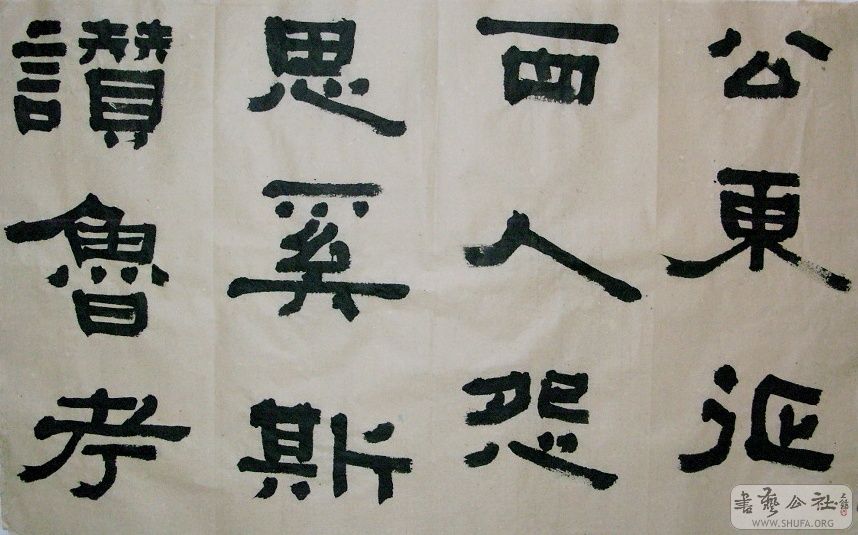 公東征
西人怨
思奚斯
讚魯考
書藝公社
WWW.SHUFA.ORG